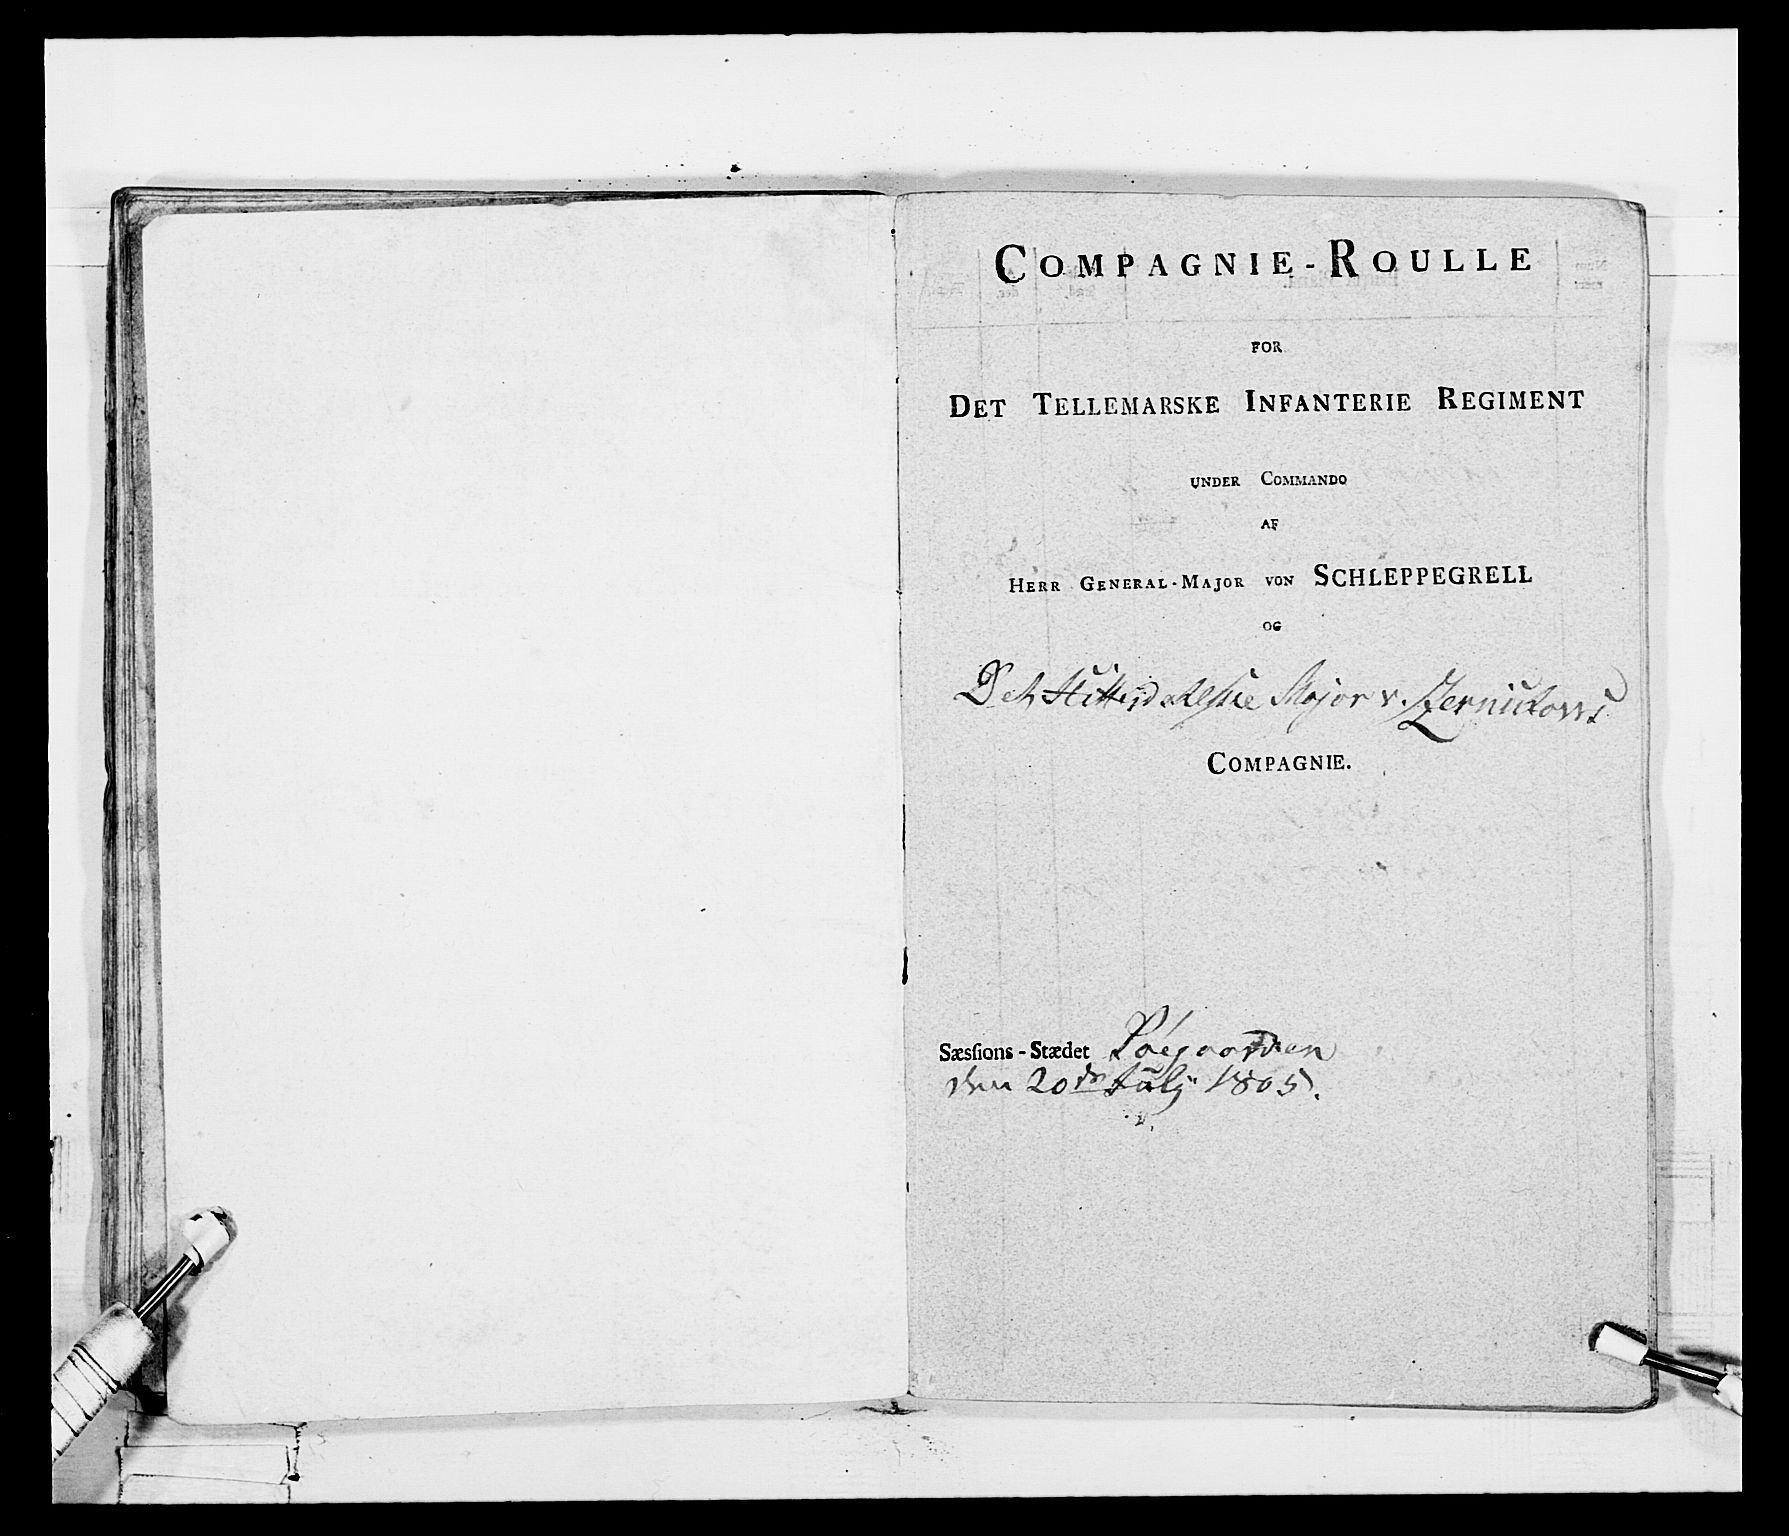 COMPAGNIE-ROULLE
FOR
DET TELLEMARSKE INFANTERIE REGIMENT
UNDER COMMANDO
AF
HERR GENERAL-MAJOR VON SCHLEPPEGRELL
OG
Det Hitterdalske Major v. Zernickows
COMPAGNIE.
Sæsſions-Stædet Søegaarden
den 20de July 1805.